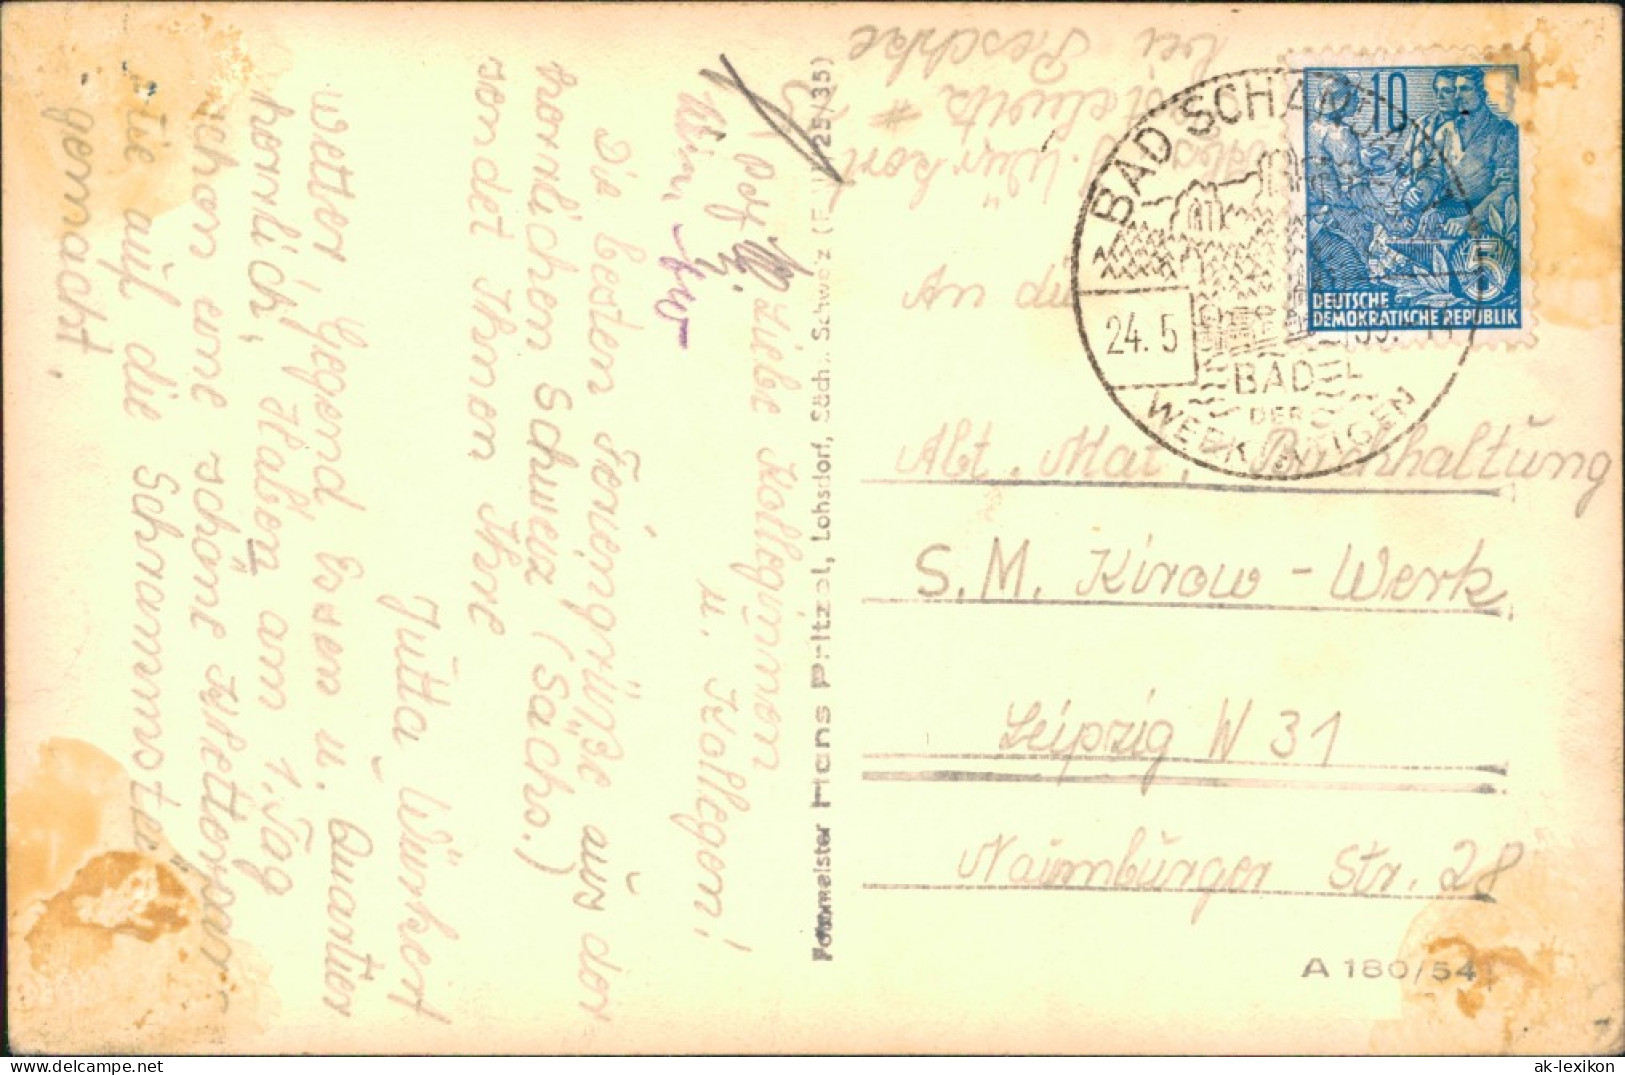 Liebe Kolleginnen
u. Kollegen!
Die besten Feriengrüße aus der
herrlichen Schweiz (Sächs.)
sendet Ihnen Ihre
Jutta Würkert
Wetter, Gegend Essen u. Quartier
herrlich, Haben am 1. Tag
schon eine schöne Kletterpar
tie auf die Schrammstei
gemacht,
Fotomeister Hans Pritzel, Lohsdorf, Sächs. Schweiz
25/35)
Würkert
bei Peschke
BAD SCHANDAU
24.5
BADEL
DER
WERKTÄTIGEN
10
5
DEUTSCHE
DEMOKRATISCHE REPUBLIK
An die
Abt. Mat. Buchhaltung
S.M. Kirow-Werk
Leipzig W 31
Naumburger Str. 28
A 180/54
ak-lexikon